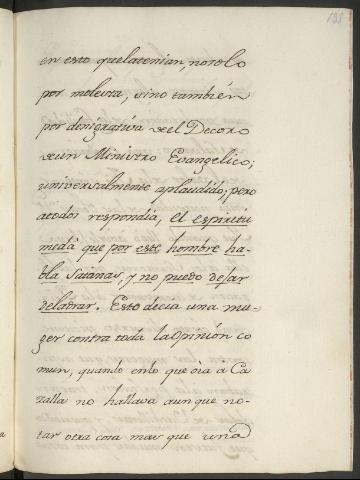 198
en esto que la tenian, no solo
por molesta, sino también
por denigrativa del Decoro
de un Ministro Evangelico;
universalmente aplaudido; pero
a todos respondia, el espiritu
me dá que por este hombre ha-
bla Satanas, y no puedo dejar
de ladrar. Esto decia una mu-
ger contra toda la opinión co
mun, quando en lo que oìa à Ca
zalla no hallava aun que no-
tar otra cosa mas que una